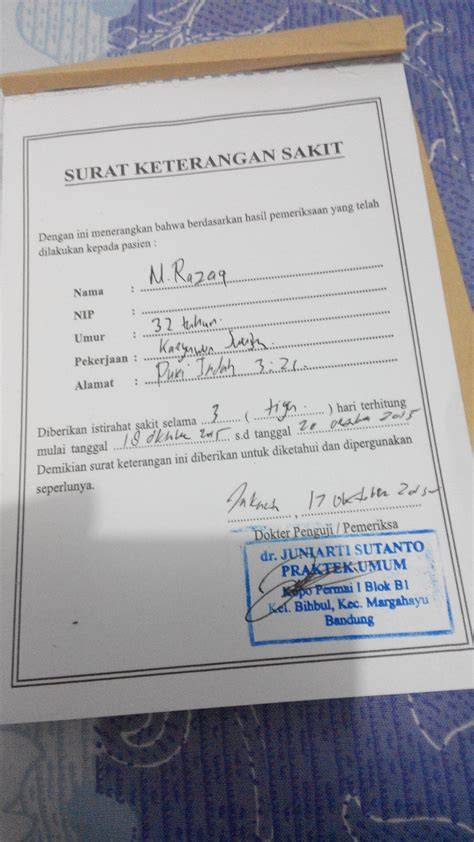 SURAT KETERANGAN SAKIT
Dengan ini menerangkan bahwa berdasarkan hasil pemeriksaan yang telah
dilakukan kepada pasien :
Nama : M. Razaq
NIP :
Umur : 32 tahun
Pekerjaan : Karyawan
Alamat : Puri Indah 3.21
Diberikan istirahat sakit selama 3 ( tiga ) hari terhitung
mulai tanggal 18 Oktober 2015 s.d tanggal 20 Oktober 2015
Demikian surat keterangan ini diberikan untuk diketahui dan dipergunakan
seperlunya.
Jakarta, 17 Oktober 2015
Dokter Penguji / Pemeriksa
dr. JUNIARTI SUTANTO
PRAKTEK UMUM
Kopo Permai I Blok B1
Kel. Bihbul, Kec. Margahayu
Bandung